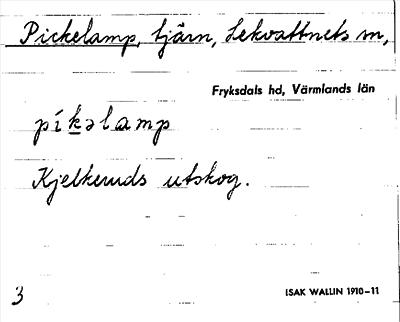 Pickelamp, tjärn, Lekvattnets sn,
Fryksdals hd, Värmlands län
píkəlamp
Kjelkeruds utskog.
3
ISAK WALLIN 1910–11